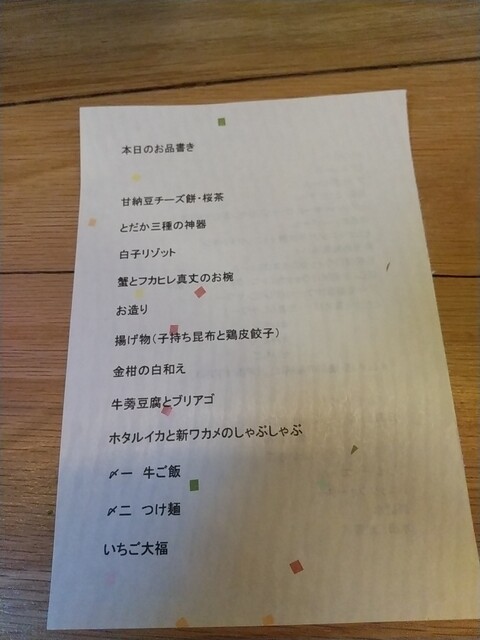 本日のお品書き
甘納豆チーズ餅・桜茶
とだか三種の神器
白子リゾット
蟹とフカヒレ真丈のお椀
お造り
揚げ物(子持ち昆布と鶏皮餃子)
金柑の白和え
牛蒡豆腐とブリアゴ
ホタルイカと新ワカメのしゃぶしゃぶ
〆一 牛ご飯
〆二 つけ麺
いちご大福